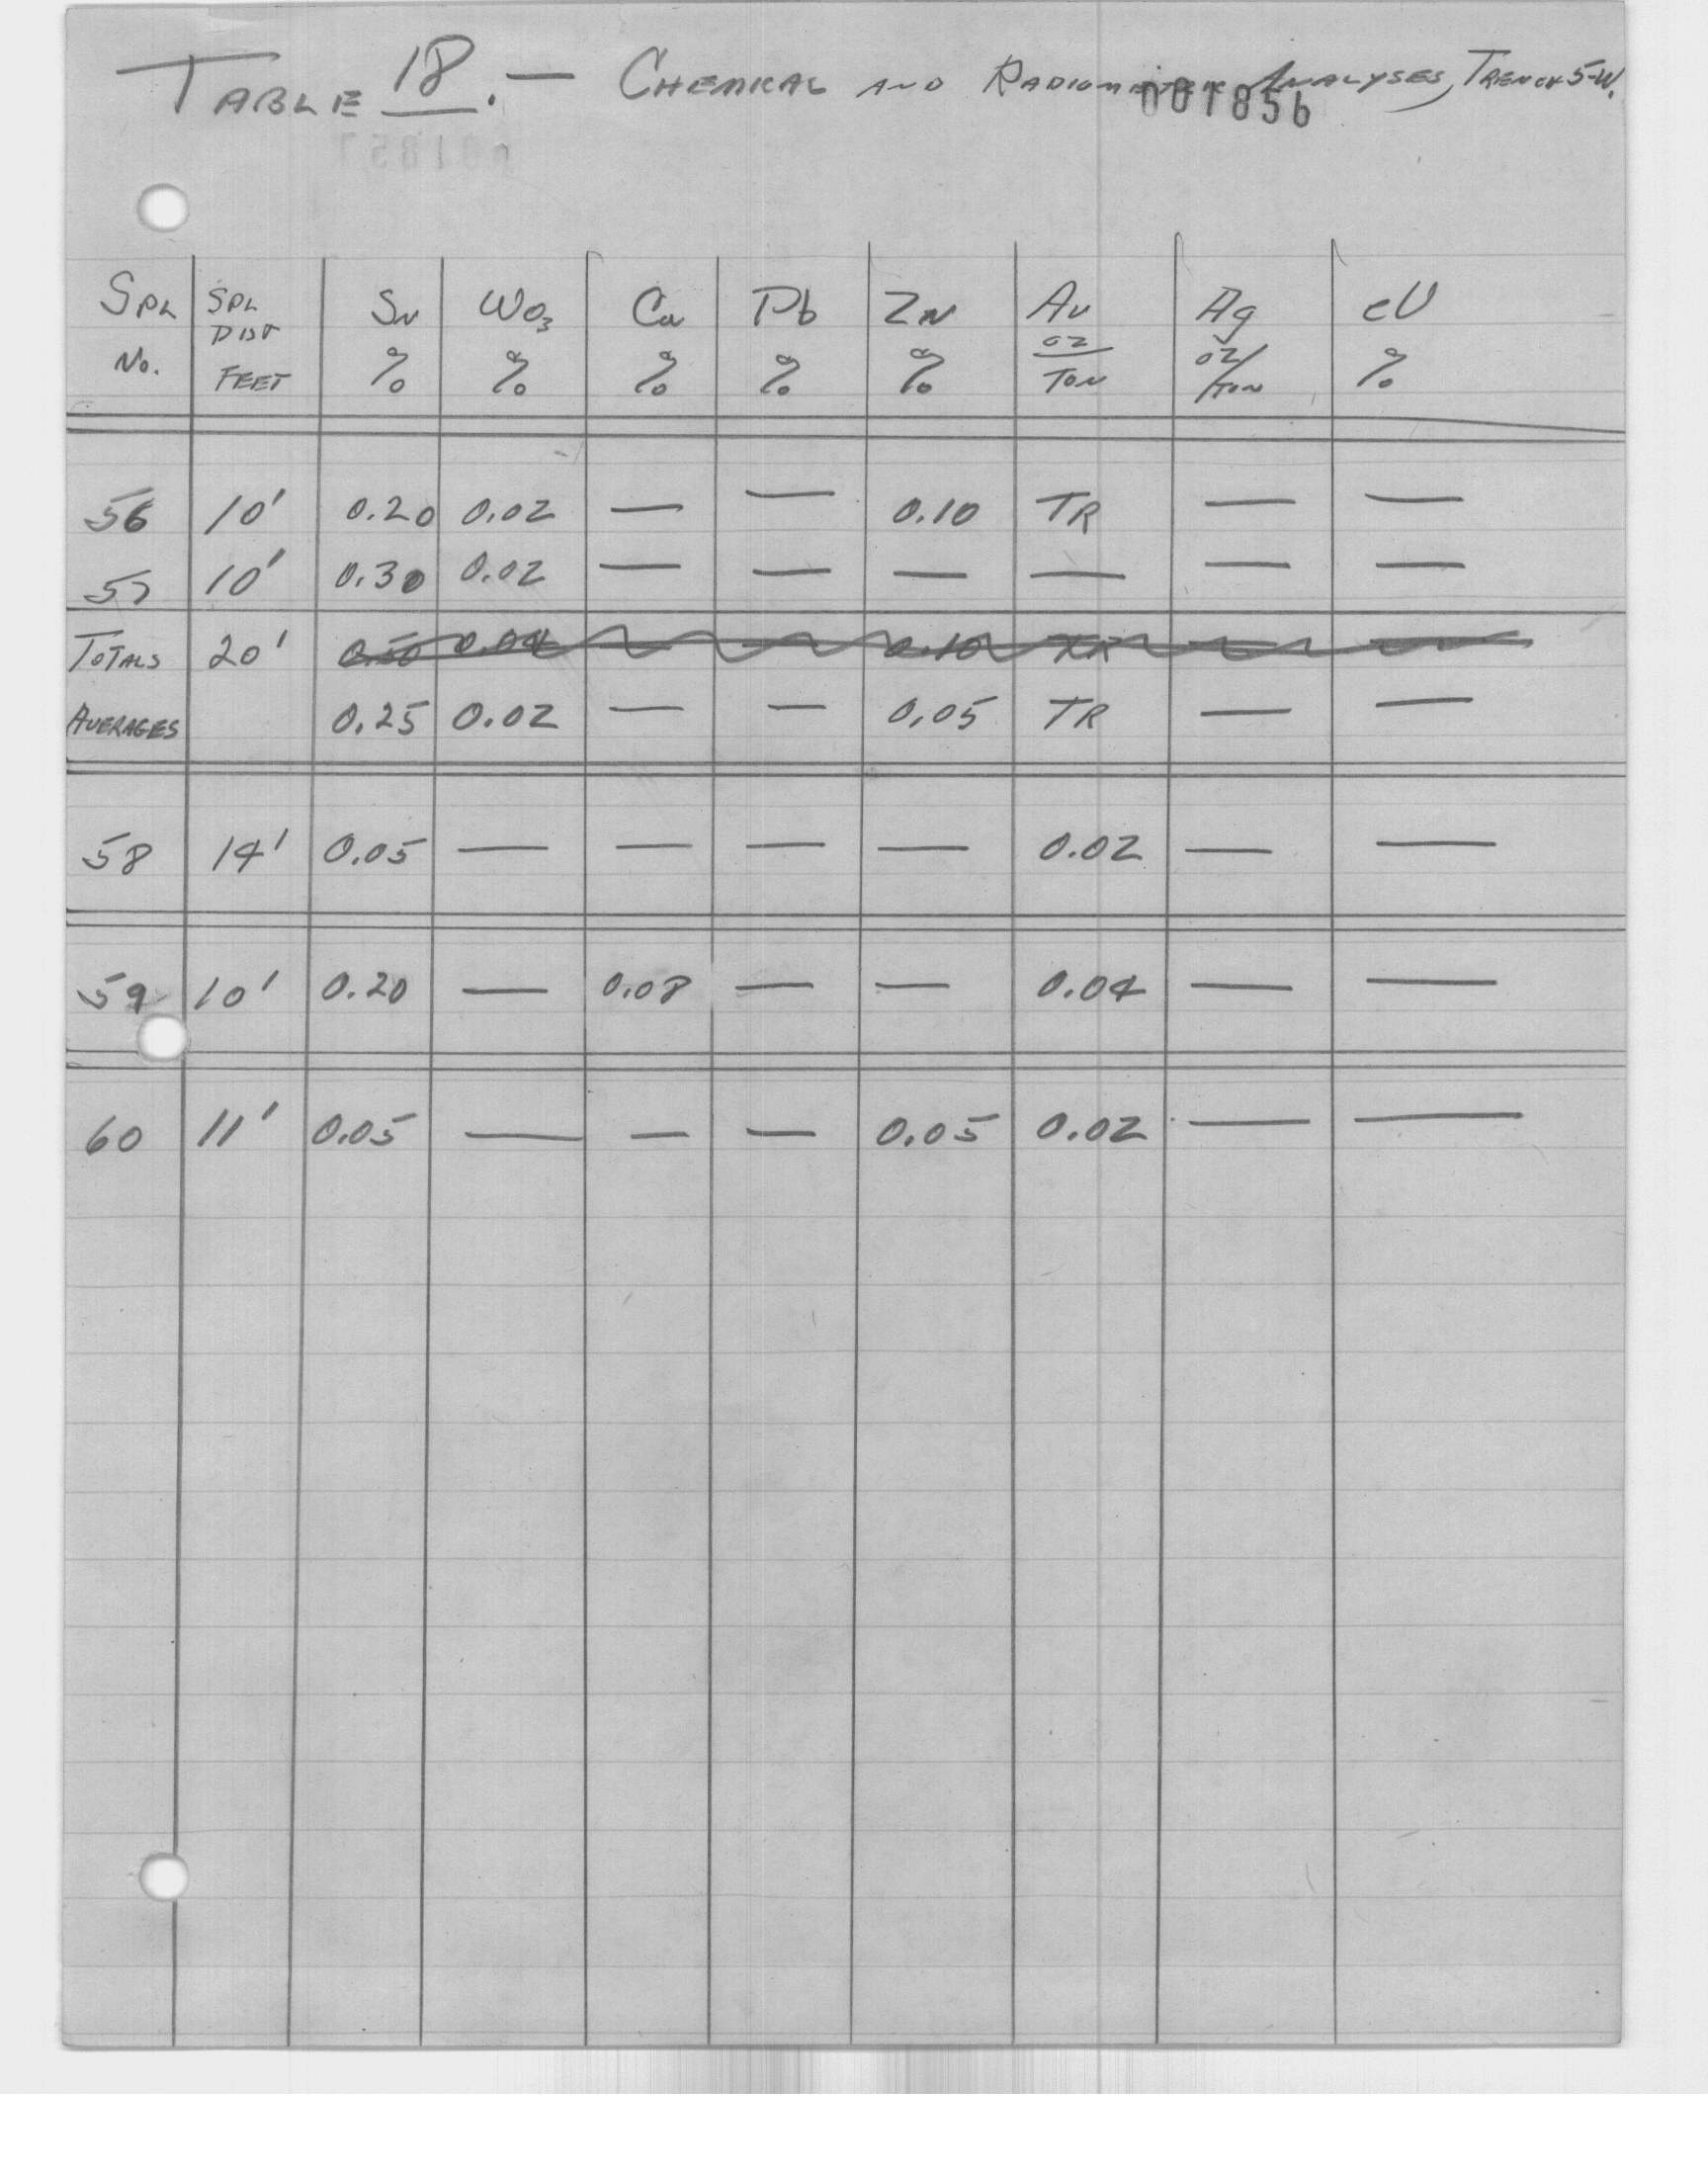 TABLE 18. — CHEMICAL AND RADIOMETRIC ANALYSES, TRENCH 5-W.
001856
SPL No. SPL DIST FEET Sn % WO3 % Cu % Pb % Zn % Au oz/TON Ag oz/TON eU %
56 10' 0.20 0.02 — — 0.10 TR — —
57 10' 0.30 0.02 — — — — — —
TOTALS 20' 0.50 0.04 — — 0.10 TR — —
AVERAGES 0.25 0.02 — — 0.05 TR — —
58 14' 0.05 — — — — 0.02 — —
59 10' 0.20 — 0.08 — — 0.04 — —
60 11' 0.05 — — — 0.05 0.02 — —